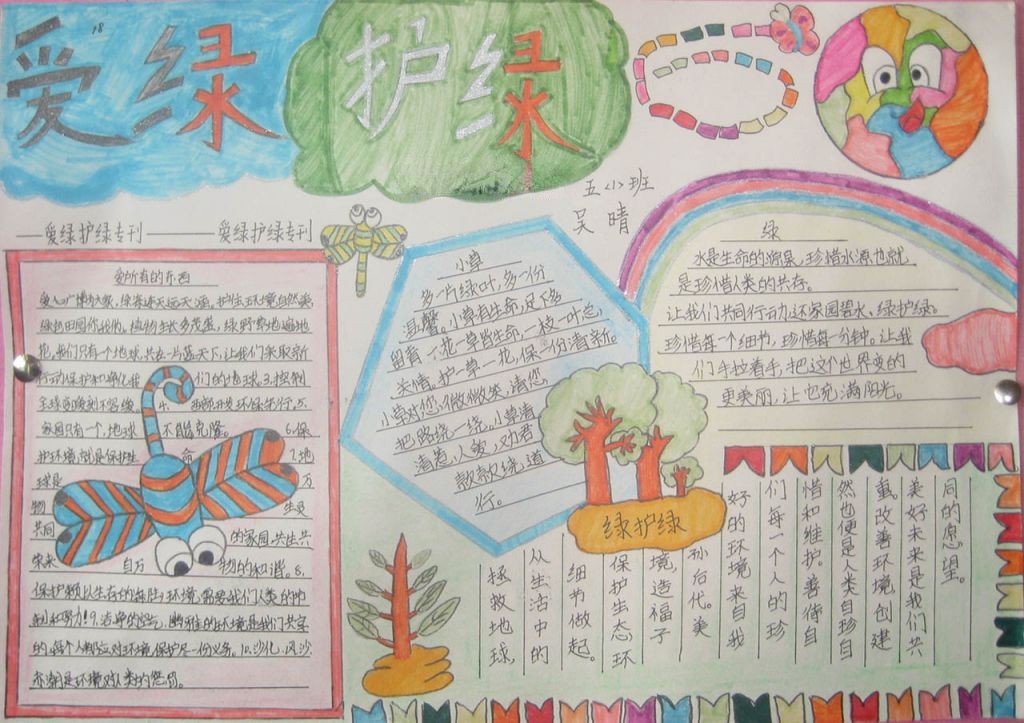 爱绿护绿
18
五(小)班
吴晴
爱绿护绿专刊 爱绿护绿专刊
爱所有的东西
花,我们只有一个地球,共在一片蓝天下,让我们采取新
行动保护和净化我们的地球。3.控制
4. 西部开发环保先行,5.
家园只有一个,地球不能克隆。6.保
护环境,就是保护生命 7.地
球是万
物生灵
共同的家园,共生共
荣来自万物的和谐。8.
保护赖以生存的每阵环境,需要我们人类的冲
制和努力!9.洁净的空气,幽雅的环境是我们共享
的,每个人都应对环境保护尽一份义务。10.沙化、风沙
赤潮是环境对人类的惩罚。
小草
多一片绿叶,多一份
温馨。小草有生命,足下多
留青,一花一草皆生命,一枝一叶总
关情。护一草一花,保一份清新。
小草对您微微笑,请您
把路绕一绕。小草清
清惹人爱,劝君
款款绕道
行。
绿
水是生命的源泉,珍惜水源也就
是珍惜人类的共存。
让我们共同行动,还家园碧水,绿护绿。
珍惜每个细节,珍惜每一分钟。让我
们手拉着手,把这个世界变的
更美丽,让它充满阳光。
绿护绿
同的愿望。
美好未来是我们共
重,改善环境创建
然也便是人类自珍自
惜和维护。善待自
们每一个人的珍
好的环境来自我
孙后代。美
境,造福子
保护生态环
细节做起。
从生活中的
拯救地球,